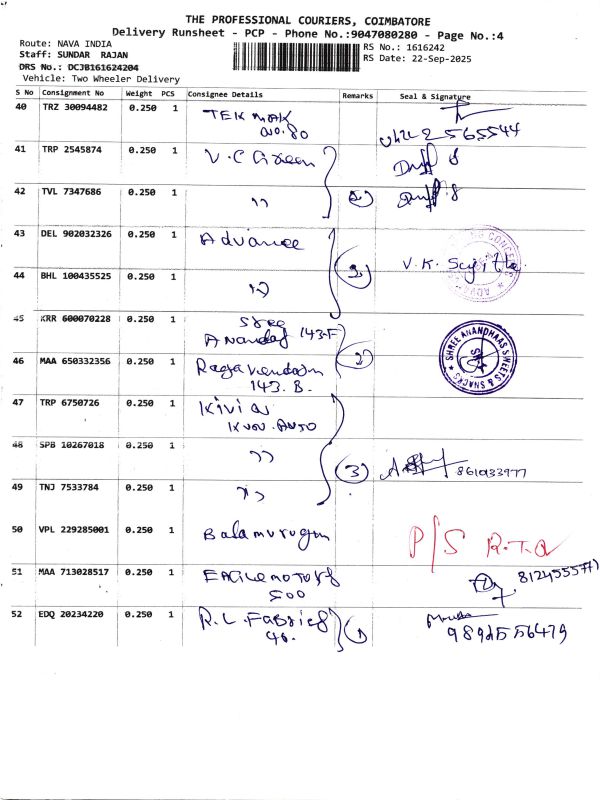 THE PROFESSIONAL COURIERS, COIMBATORE
Delivery Runsheet - PCP - Phone No.:9047080280 - Page No.:4
Route: NAVA INDIA
RS No.: 1616242
Staff: SUNDAR RAJAN
RS Date: 22-Sep-2025
DRS No.: DCJB161624204
Vehicle: Two Wheeler Delivery
S No Consignment No Weight PCS Consignee Details Remarks Seal & Signature
40 TRZ 30094482 0.250 1 TEK MAK
NO. 80
2565544
41 TRP 2545874 0.250 1 V.C Green
42 TVL 7347686 0.250 1 ,, 2
43 DEL 902032326 0.250 1 Advance
2 V.K. Sujitha
44 BHL 100435525 0.250 1 ,,
45 KRR 600070228 0.250 1 Sree
Anandas 143-F
2 SHREE ANANDHAAS SWEETS & SNACKS
46 MAA 650332356 0.250 1 Ragavendam
143. B.
47 TRP 6750726 0.250 1 Kivi as
48 SPB 10267018 0.250 1 ,,
3
49 TNJ 7533784 0.250 1 ,,
50 VPL 229285001 0.250 1 Balamurugan P/S R.T.O
51 MAA 713028517 0.250 1
500
52 EDQ 20234220 0.250 1 R.L. Fabrics
40. 1